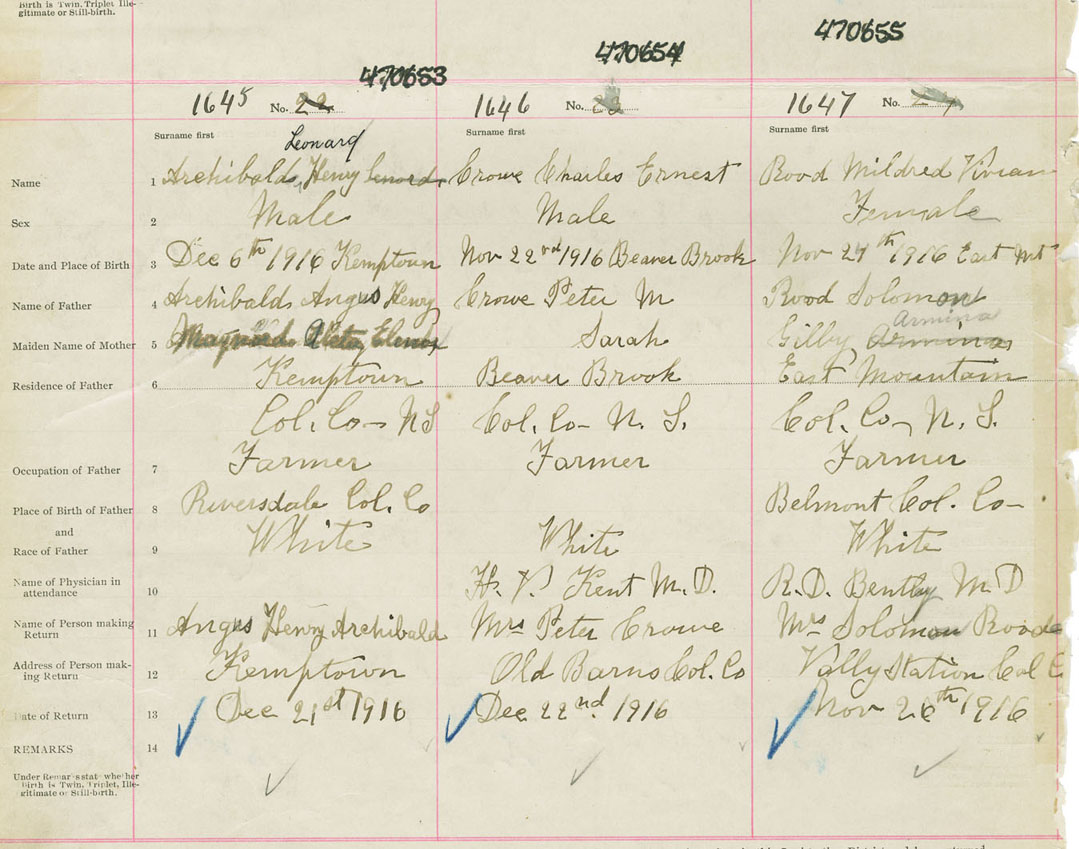 Birth is Twin, Triplet, Ille-
gitimate or Still-birth.
470653 470654 470655
1645 No. 22 1646 No. 1647 No.
Surname first Surname first Surname first
Leonard
Name 1 Archibald, Henry Lenord, Crowe Charles Ernest Rood Mildred Vivian
Sex 2 Male Male Female
Date and Place of Birth 3 Dec 6th 1916 Kemptown Nov 22nd 1916 Beaver Brook Nov 24th 1916 East Mt
Name of Father 4 Archibald, Angus Henry Crowe Peter M Rood Solomon
Armina
Maiden Name of Mother 5 Maynard Aleta Elenor Sarah Gilby Armina
Residence of Father 6 Kemptown Beaver Brook East Mountain
Col. Co- NS Col. Co- N. S. Col. Co- N. S.
Occupation of Father 7 Farmer Farmer Farmer
Place of Birth of Father 8 Riversdale Col. Co Belmont Col. Co-
and
Race of Father 9 White White White
Name of Physician in
attendance 10 H. V. Kent M. D. R. D. Bently M. D
Name of Person making
Return 11 Angus Henry Archibald Mrs Peter Crowe Mrs Solomon Rood
Address of Person mak-
ing Return 12 Kemptown Old Barns Col. Co Vally Station Col C
Date of Return 13 Dec 21st 1916 Dec 22nd 1916 Nov 26th 1916
REMARKS 14
Under Remarks state whether
Birth is Twin, Triplet, Ille-
gitimate or Still-birth.